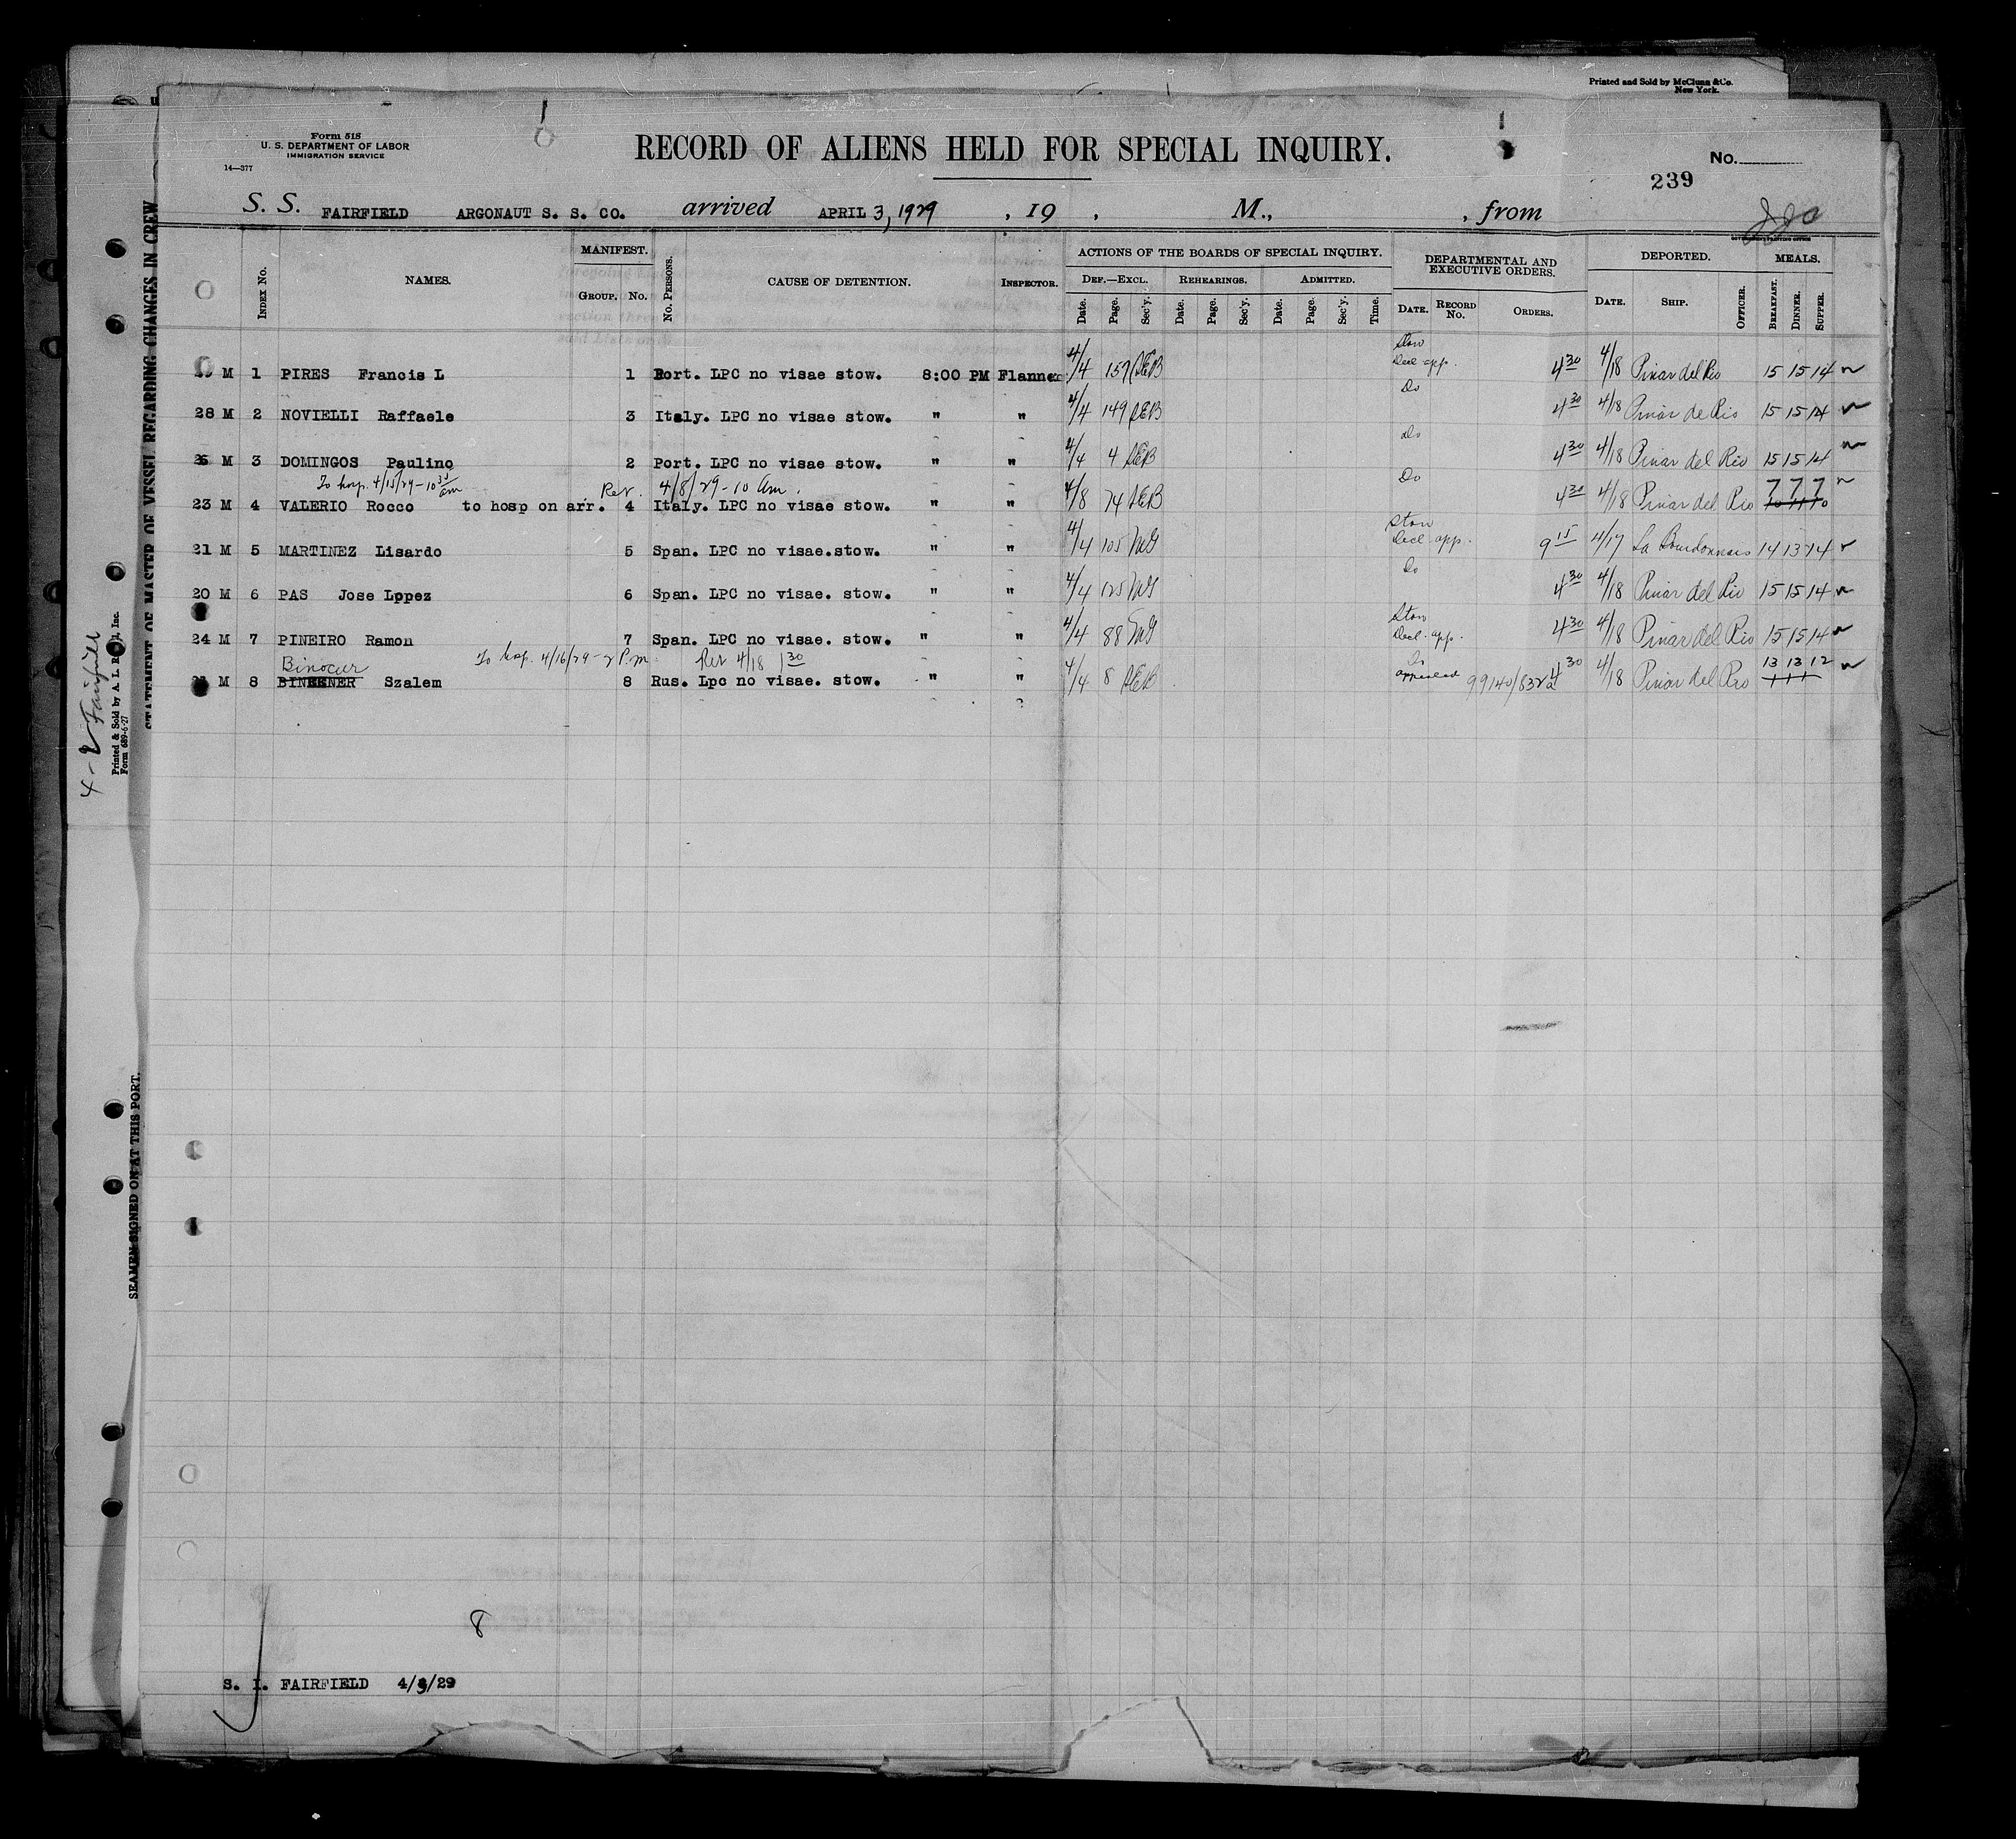 Printed and Sold by McClunn & Co.
New York.
Form 518
U. S. DEPARTMENT OF LABOR
IMMIGRATION SERVICE
14—377
RECORD OF ALIENS HELD FOR SPECIAL INQUIRY.
No.
239
S. S. FAIRFIELD ARGONAUT S. S. CO. arrived APRIL 3, 1929 , 19 , M., , from
GOVERNMENT PRINTING OFFICE
INDEX No. NAMES. MANIFEST. GROUP. No. No. PERSONS. CAUSE OF DETENTION. INSPECTOR. ACTIONS OF THE BOARDS OF SPECIAL INQUIRY. DEPARTMENTAL AND EXECUTIVE ORDERS. DEPORTED. MEALS.
DEF.—EXCL. REHEARINGS. ADMITTED.
Date. Page. Sec'y. Date. Page. Sec'y. Date. Page. Sec'y. Time. DATE. RECORD No. ORDERS. DATE. SHIP. OFFICER. BREAKFAST. DINNER. SUPPER.
Stow
Decl app.
M 1 PIRES Francis L 1 Port. LPC no visae stow. 8:00 PM Flanner 4/4 157 AEB 4 30 4/18 Pinar del Rio 15 15 14
Do
28 M 2 NOVIELLI Raffaele 3 Italy. LPC no visae stow. " " 4/4 149 AEB 4 30 4/18 Pinar de Rio 15 15 14
Do
26 M 3 DOMINGOS Paulino 2 Port. LPC no visae stow. " " 4/4 4 AEB 4 30 4/18 Pinar del Rio 15 15 14
To hosp. 4/15/29 - 10 35 am Ret. 4/8/29 - 10 am. Do 7 7 7
23 M 4 VALERIO Rocco to hosp on arr. 4 Italy. LPC no visae stow. " " 4/8 74 AEB 4 30 4/18 Pinar del Rio 10 11 10
Stow
Decl. app.
21 M 5 MARTINEZ Lisardo 5 Span. LPC no visae.stow. " " 4/4 105 9 15 4/17 La Bourdonnais 14 13 14
Do
20 M 6 PAS Jose Lppez 6 Span. LPC no visae. stow. " " 4/4 125 4 30 4/18 Pinar del Rio 15 15 14
Stow
Decl. app.
24 M 7 PINEIRO Ramon 7 Span. LPC no visae. stow. " " 4/4 88 4 30 4/18 Pinar del Rio 15 15 14
Binocur To hosp. 4/16/29 - 2 P.m. Ret 4/18 1 30 Do 13 13 12
M 8 BINEENER Szalem 8 Rus. Lpc no visae. stow. " " 4/4 8 AEB appealed 99140/832 4 30 4/18 Pinar del Rio
8
S. I. FAIRFIELD 4/3/29
STATEMENT OF MASTER OF VESSEL REGARDING CHANGES IN CREW
SEAMEN SIGNED ON AT THIS PORT.
4-2 Fairfield
Printed & Sold by A. L. Inc.
Form 689-6-27